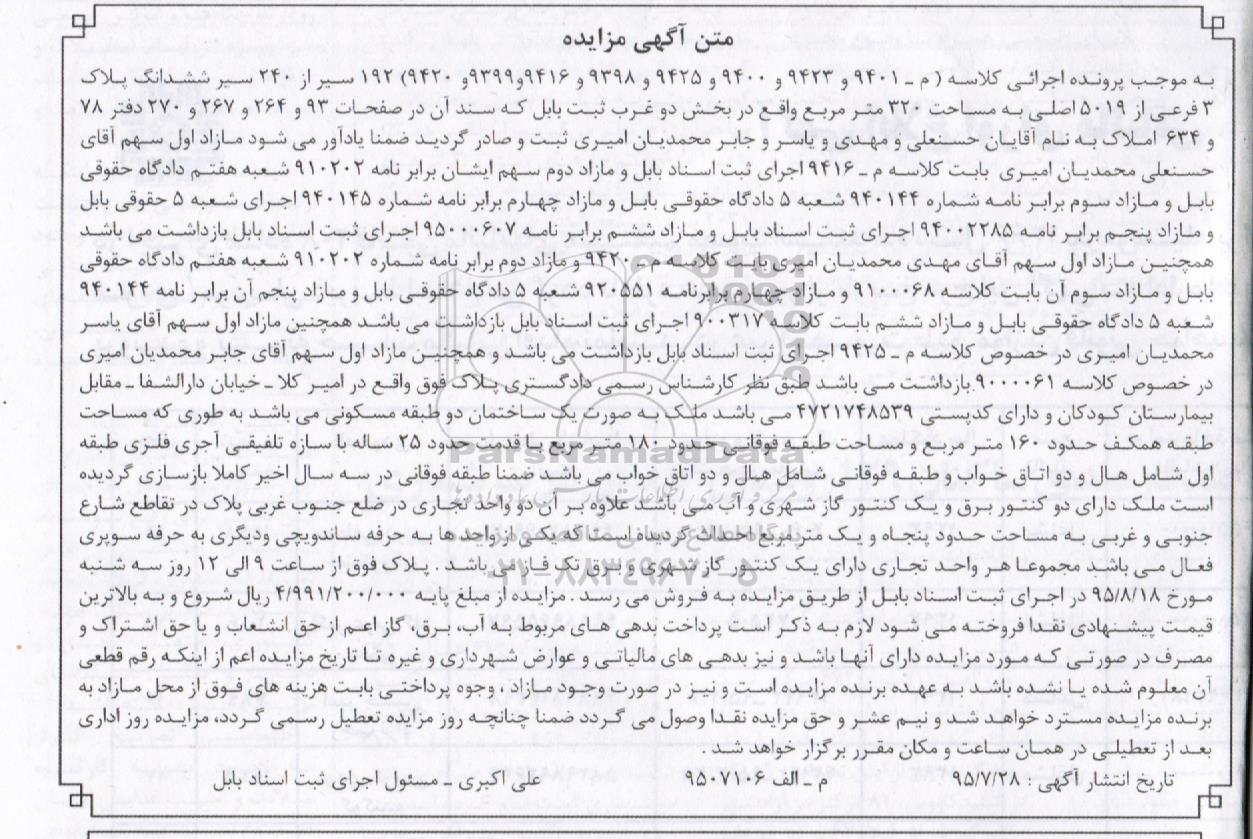 متن آگهی مزایده
به موجب پرونده اجرائی کلاسه ( م ـ ۹۴۰۱ و ۹۴۲۳ و ۹۴۰۰ و ۹۴۲۵ و ۹۳۹۸ و ۹۴۱۶ و۹۳۹۹و ۹۴۲۰) ۱۹۲ سیر از ۲۴۰ سیر ششدانگ پلاک
۳ فرعی از ۵۰۱۹ اصلی به مساحت ۳۲۰ متر مربع واقع در بخش دو غرب ثبت بابل که سند آن در صفحات ۹۳ و ۲۶۴ و ۲۶۷ و ۲۷۰ دفتر ۷۸
و ۶۳۴ املاک به نام آقایان حسنعلی ومهدی و یاسر و جابر محمدیان امیری ثبت و صادر گردید ضمنا یادآور می شود مازاد اول سهم آقای
حسنعلی محمدیان امیری بابت کلاسه م ـ ۹۴۱۶ اجرای ثبت اسناد بابل و مازاد دوم سهم ایشان برابر نامه ۹۱۰۲۰۲ شعبه هفتم دادگاه حقوقی
بابل و مازاد سوم برابر نامه شماره ۹۴۰۱۴۴ شعبه ۵ دادگاه حقوقی بابل و مازاد چهارم برابر نامه شماره ۹۴۰۱۴۵ اجرای شعبه ۵ حقوقی بابل
و مازاد پنجم برابر نامه ۹۴۰۰۲۲۸۵ اجرای ثبت اسناد بابل و مازاد ششم برابر نامه ۹۵۰۰۰۶۰۷ اجرای ثبت اسناد بابل بازداشت می باشد
همچنین مازاد اول سهم آقای مهدی محمدیان امیری بابت کلاسه م ـ ۹۴۲۰ و مازاد دوم برابر نامه شماره ۹۱۰۲۰۲ شعبه هفتم دادگاه حقوقی
بابل و مازاد سوم آن بابت کلاسه ۹۱۰۰۰۶۸ و مازاد چهارم برابرنامه ۹۲۰۵۵۱ شعبه ۵ دادگاه حقوقی بابل و مازاد پنجم آن برابر نامه ۹۴۰۱۴۴
شعبه ۵ دادگاه حقوقی بابل و مازاد ششم بابت کلاسه ۹۰۰۳۱۷ اجرای ثبت اسناد بابل بازداشت می باشد همچنین مازاد اول سهم آقای یاسر
محمدیان امیری در خصوص کلاسه م ـ ۹۴۲۵ اجرای ثبت اسناد بابل بازداشت می باشد و همچنین مازاد اول سهم آقای جابر محمدیان امیری
در خصوص کلاسه ۹۰۰۰۰۶۱ بازداشت می باشد طبق نظر کارشناس رسمی دادگستری پلاک فوق واقع در امیر کلا ـ خیابان دارالشفا ـ مقابل
بیمارستان کودکان و دارای کدپستی ۴۷۳۱۷۴۸۵۳۹ می باشد ملک به صورت یک ساختمان دو طبقه مسکونی می باشد به طوری که مساحت
طبقه همکف حدود ۱۶۰ متر مربع و مساحت طبقه فوقانی حدود ۱۸۰ متر مربع با قدمت حدود ۲۵ ساله با سازه تلفیقی آجری فلزی طبقه
اول شامل هال و دو اتاق خواب و طبقه فوقانی شامل هال و دو اتاق خواب می باشد ضمنا طبقه فوقانی در سه سال اخیر کاملا بازسازی گردیده
است ملک دارای دو کنتور برق و یک کنتور گاز شهری و آب می باشد علاوه بر آن دو واحد تجاری در ضلع جنوب غربی پلاک در تقاطع شارع
جنوبی و غربی به مساحت حدود پنجاه و یک متر مربع احداث گردیده است که یکی از واحد ها به حرفه ساندویچی ودیگری به حرفه سوپری
فعال می باشد مجموعا هر واحد تجاری دارای یک کنتور گاز شهری و برق تک فاز می باشد . پلاک فوق از ساعت ۹ الی ۱۲ روز سه شنبه
مورخ ۹۵/۸/۱۸ در اجرای ثبت اسناد بابل از طریق مزایده به فروش می رسد . مزایده از مبلغ پایه ۴/۹۹۱/۲۰۰/۰۰۰ ریال شروع و به بالاترین
قیمت پیشنهادی نقدا فروخته می شود لازم به ذکر است پرداخت بدهی های مربوط به آب، برق، گاز اعم از حق انشعاب و یا حق اشتراک و
مصرف در صورتی که مورد مزایده دارای آنها باشد و نیز بدهی های مالیاتی و عوارض شهرداری و غیره تا تاریخ مزایده اعم از اینکه رقم قطعی
آن معلوم شده یا نشده باشد به عهده برنده مزایده است و نیز در صورت وجود مازاد، وجوه پرداختی بابت هزینه های فوق از محل مازاد به
برنده مزایده مسترد خواهد شد و نیم عشر و حق مزایده نقدا وصول می گردد ضمنا چنانچه روز مزایده تعطیل رسمی گردد، مزایده روز اداری
بعد از تعطیلی در همان ساعت و مکان مقرر برگزار خواهد شد .
تاریخ انتشار آگهی : ۹۵/۷/۲۸ م ـ الف ۹۵۰۷۱۰۶ علی اکبری ـ مسئول اجرای ثبت اسنادبابل
ParsNamadData
۰۲۱-۸۸۳۴۹۶۷۰-۵